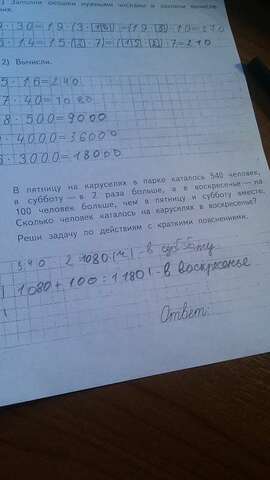 Заполни окошки нужными числами и закончи вычисле-
ния.
· 30 = 19 · (3 · 10) = (19 · 3) · 10 = 570
· 14 = 15 · (2 · 7) = (15 · 2) · 7 = 210
2) Вычисли.
5 · 16 = 240
7 · 40 = 1080
8 · 500 = 9000
· 4000 = 36000
· 3000 = 18000
В пятницу на каруселях в парке каталось 540 человек,
в субботу — в 2 раза больше, а в воскресенье — на
100 человек больше, чем в пятницу и субботу вместе.
Сколько человек каталось на каруселях в воскресенье?
Реши задачу по действиям с краткими пояснениями.
540 2 = 1080 (ч) - в субботу
1080 + 100 = 1180 - в воскресенье
Ответ: